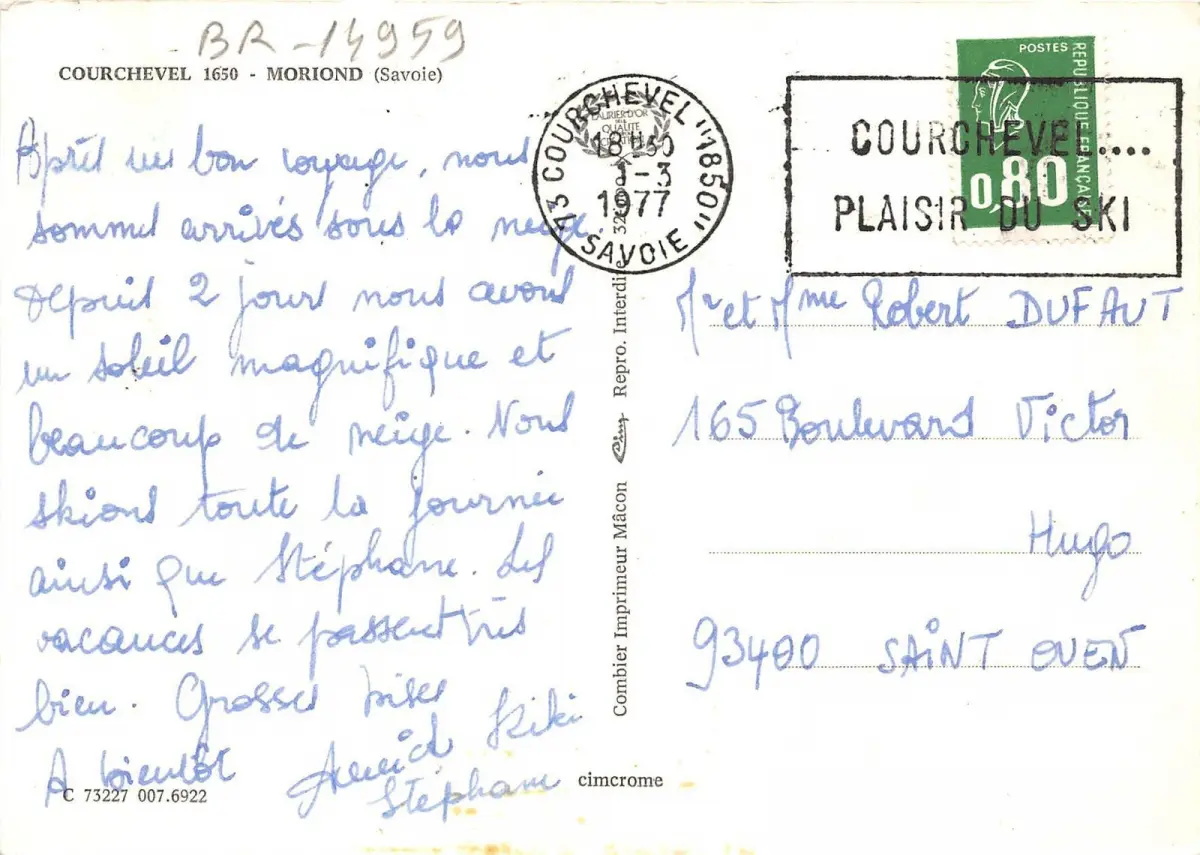 BR-14959
COURCHEVEL 1650 - MORIOND (Savoie)
Après un bon voyage, nous
sommes arrivés sous la neige.
Depuis 2 jours nous avons
un soleil magnifique et
beaucoup de neige. Nous
skions toute la journée
ainsi que Stéphane. Les
vacances se passent très
bien. Grosses bises
A bientôt
Kiki
Stéphane
C 73227 007.6922
cimcrome
Combier Imprimeur Mâcon
Repro. Interdite
LAURIER D'OR
QUALITÉ
73 COURCHEVEL "1850"
18H30
1-3
1977
SAVOIE
POSTES
REPUBLIQUE FRANÇAISE
0,80
COURCHEVEL....
PLAISIR DU SKI
Mr et Mme Robert DUFAUT
165 Boulevard Victor
Hugo
93400 SAINT OUEN